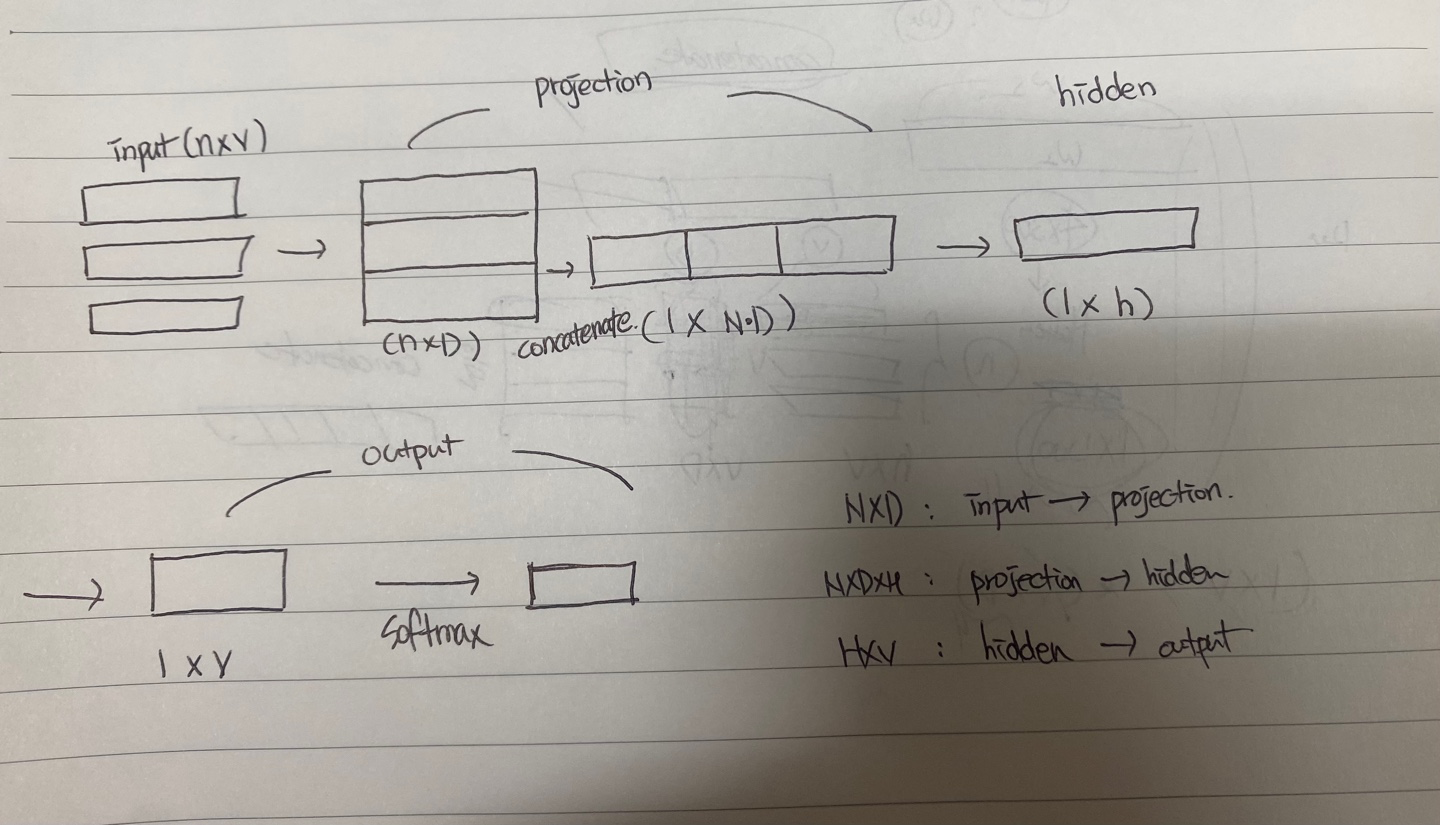 projection
hidden
input (n×V)
(n×D)
concatenate. (1 × N·D)
(1 × h)
output
softmax
1 × V
N×D : input → projection.
N×D×H : projection → hidden
H×V : hidden → output